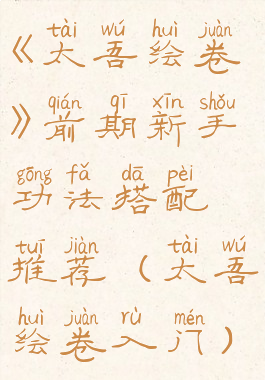 tài wú huì juàn
《太吾绘卷
qián qī xīn shǒu
》前期新手
gōng fǎ dā pèi
功法搭配
tuī jiàn tài wú
推荐（太吾
huì juàn rù mén
绘卷入门）